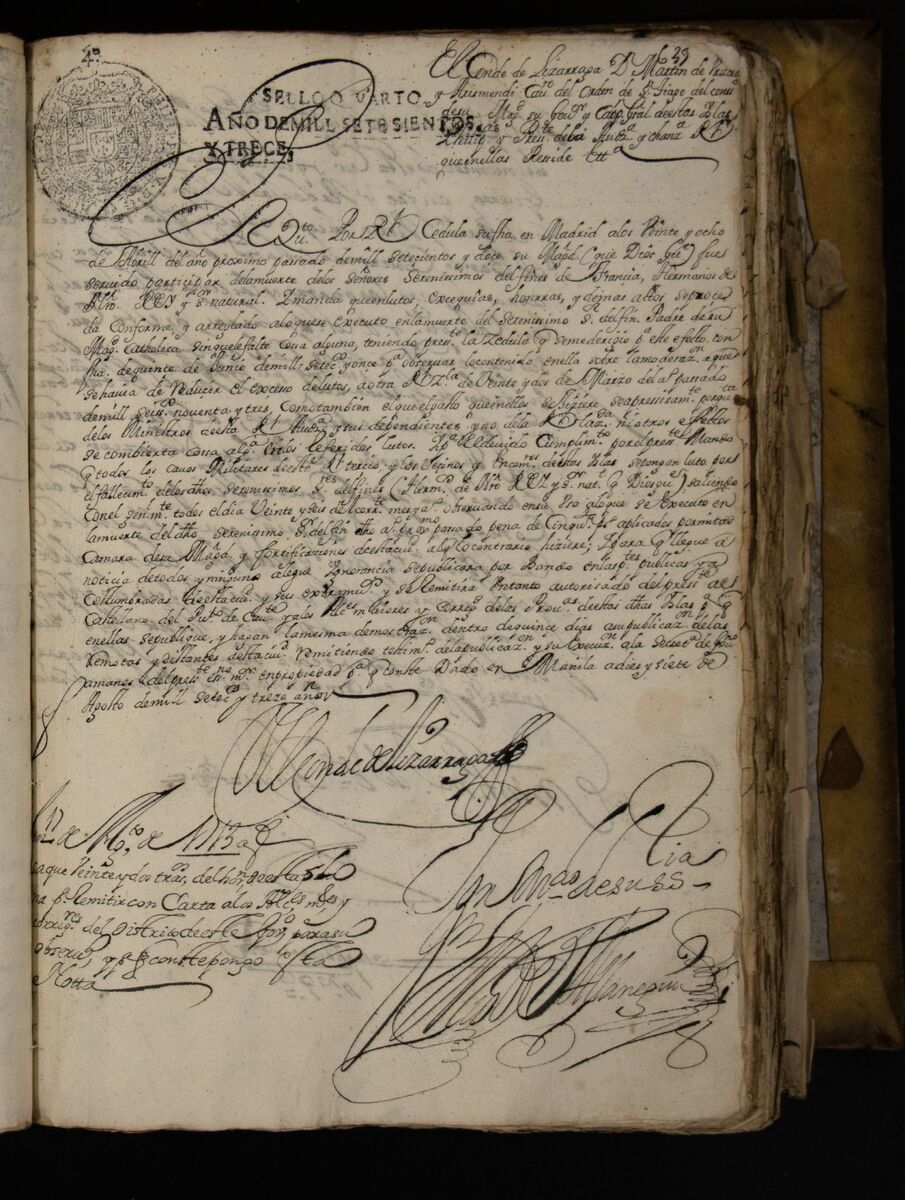 4º
39
SELLO QVARTO,
AÑO DE MILL SETESIENTOS,
Y TRECE,
El Conde de Lizarraga D. Martin de
y Arismendi Cau.ro del Orden de S. Tiago del conss
desu Mag.d su Gou.or y Cap.n Gral destas Yslas
Philip.s y Press.te de la Aud.a y chanz.a Rl
queenellas Reside Ett.a
Por Rl Cedula su fha. en Madrid alos Veinte y ocho
de Abrill del año proximo passado demill setecientos y doce su Mag.d (que Dios Gue) fue
seruido participar delamuerte delos Señores Serenissimos delfines de Francia, Hermanos de
Nro. REY y sr natural. Ymanda queenlutos, Exequias, honrras, y demas actos seproce
da Conforme, y arreglado aloquese Executo enlamuerte del Serenisimo sr. delfin. Padre de su
Mag.d Catholica sinquelefalte cosa alguna, teniendo pres.te la Zedula q semederigio pa. este efecto, con
fha. dequinte de Junio demill. setec.s yonce pa. observar locontenido enella sobre lamoderaz.on aque
sehauia de reducir el exceso delutos, aotra Rl Zla de Veinte y dos de Marzo del aº passado
demill seis.os nouenta y tres, Comotambien el queelgasto queenellos sehiziere seapressiram.te porqta
delos Ministros desta Rl Aud.a y sus dependientes yno dela Rl Haz.da niotros effectos
se combierta cosa alg.a enlos referidos lutos. Ypa eldeuido Cumplim.to porelpress.te Mando
q todos los cauos Militares deeste Rl tercio, y los Vezinos y Encom.ros destas Yslas sepongan luto por
elfallecim.to delos dhos serenissimos Sres delfines (Herm.os de Nro REY y sr. nat.l q Dios gue) saliendo
Conel dentro. todos el dia Veinte y seis de corr.te mez ya. obseruando ensu Vso aloque se Executo en
lamuerte del dho serenisimo sr. delfin dho aº. proxmo passado pena de Cinqu.ta ps aplicados pormitad
Camara desu Mag.d y fortificaciones destaciu.d alq locontrario hiziere; Ypara q llegue a
noticia detodos y ninguno alegue Ygnorancia sepublicara por Bando enlasptes publicas y a
costumbradas destaciu.d y sus extramu.s y se Remitira Vntanto autorisado del press.te al
Castellano del Pu.to de Cau.te y alos Alc.es maiores y Correg.res delas Prou.s destas dhas Yslas pa q
enellas sepublique, y hagan lamesma demostraz.on dentro dequince dias asupublicaz.on delas
Remotas y distantes destaciu.d remitiendo testim.o delapublicaz.on y su Execuz.on ala Secret.a de Gou.no
amanos del press.te no m.or enpropiedad pa q conste Dado en Manila adies y siete de
Agosto demill setec.s y treze años
El Conde de Lizarraga
Por Mdo. de su Sria
17 de Ag.to de 1713 as
saque Veinte y dos tras. del
pa Remitir con Carta alos Alc.es m.res y
correg.res del Distrito deeste Gou.no parasu
obseru.a y pa q conste pongo esta
Notta